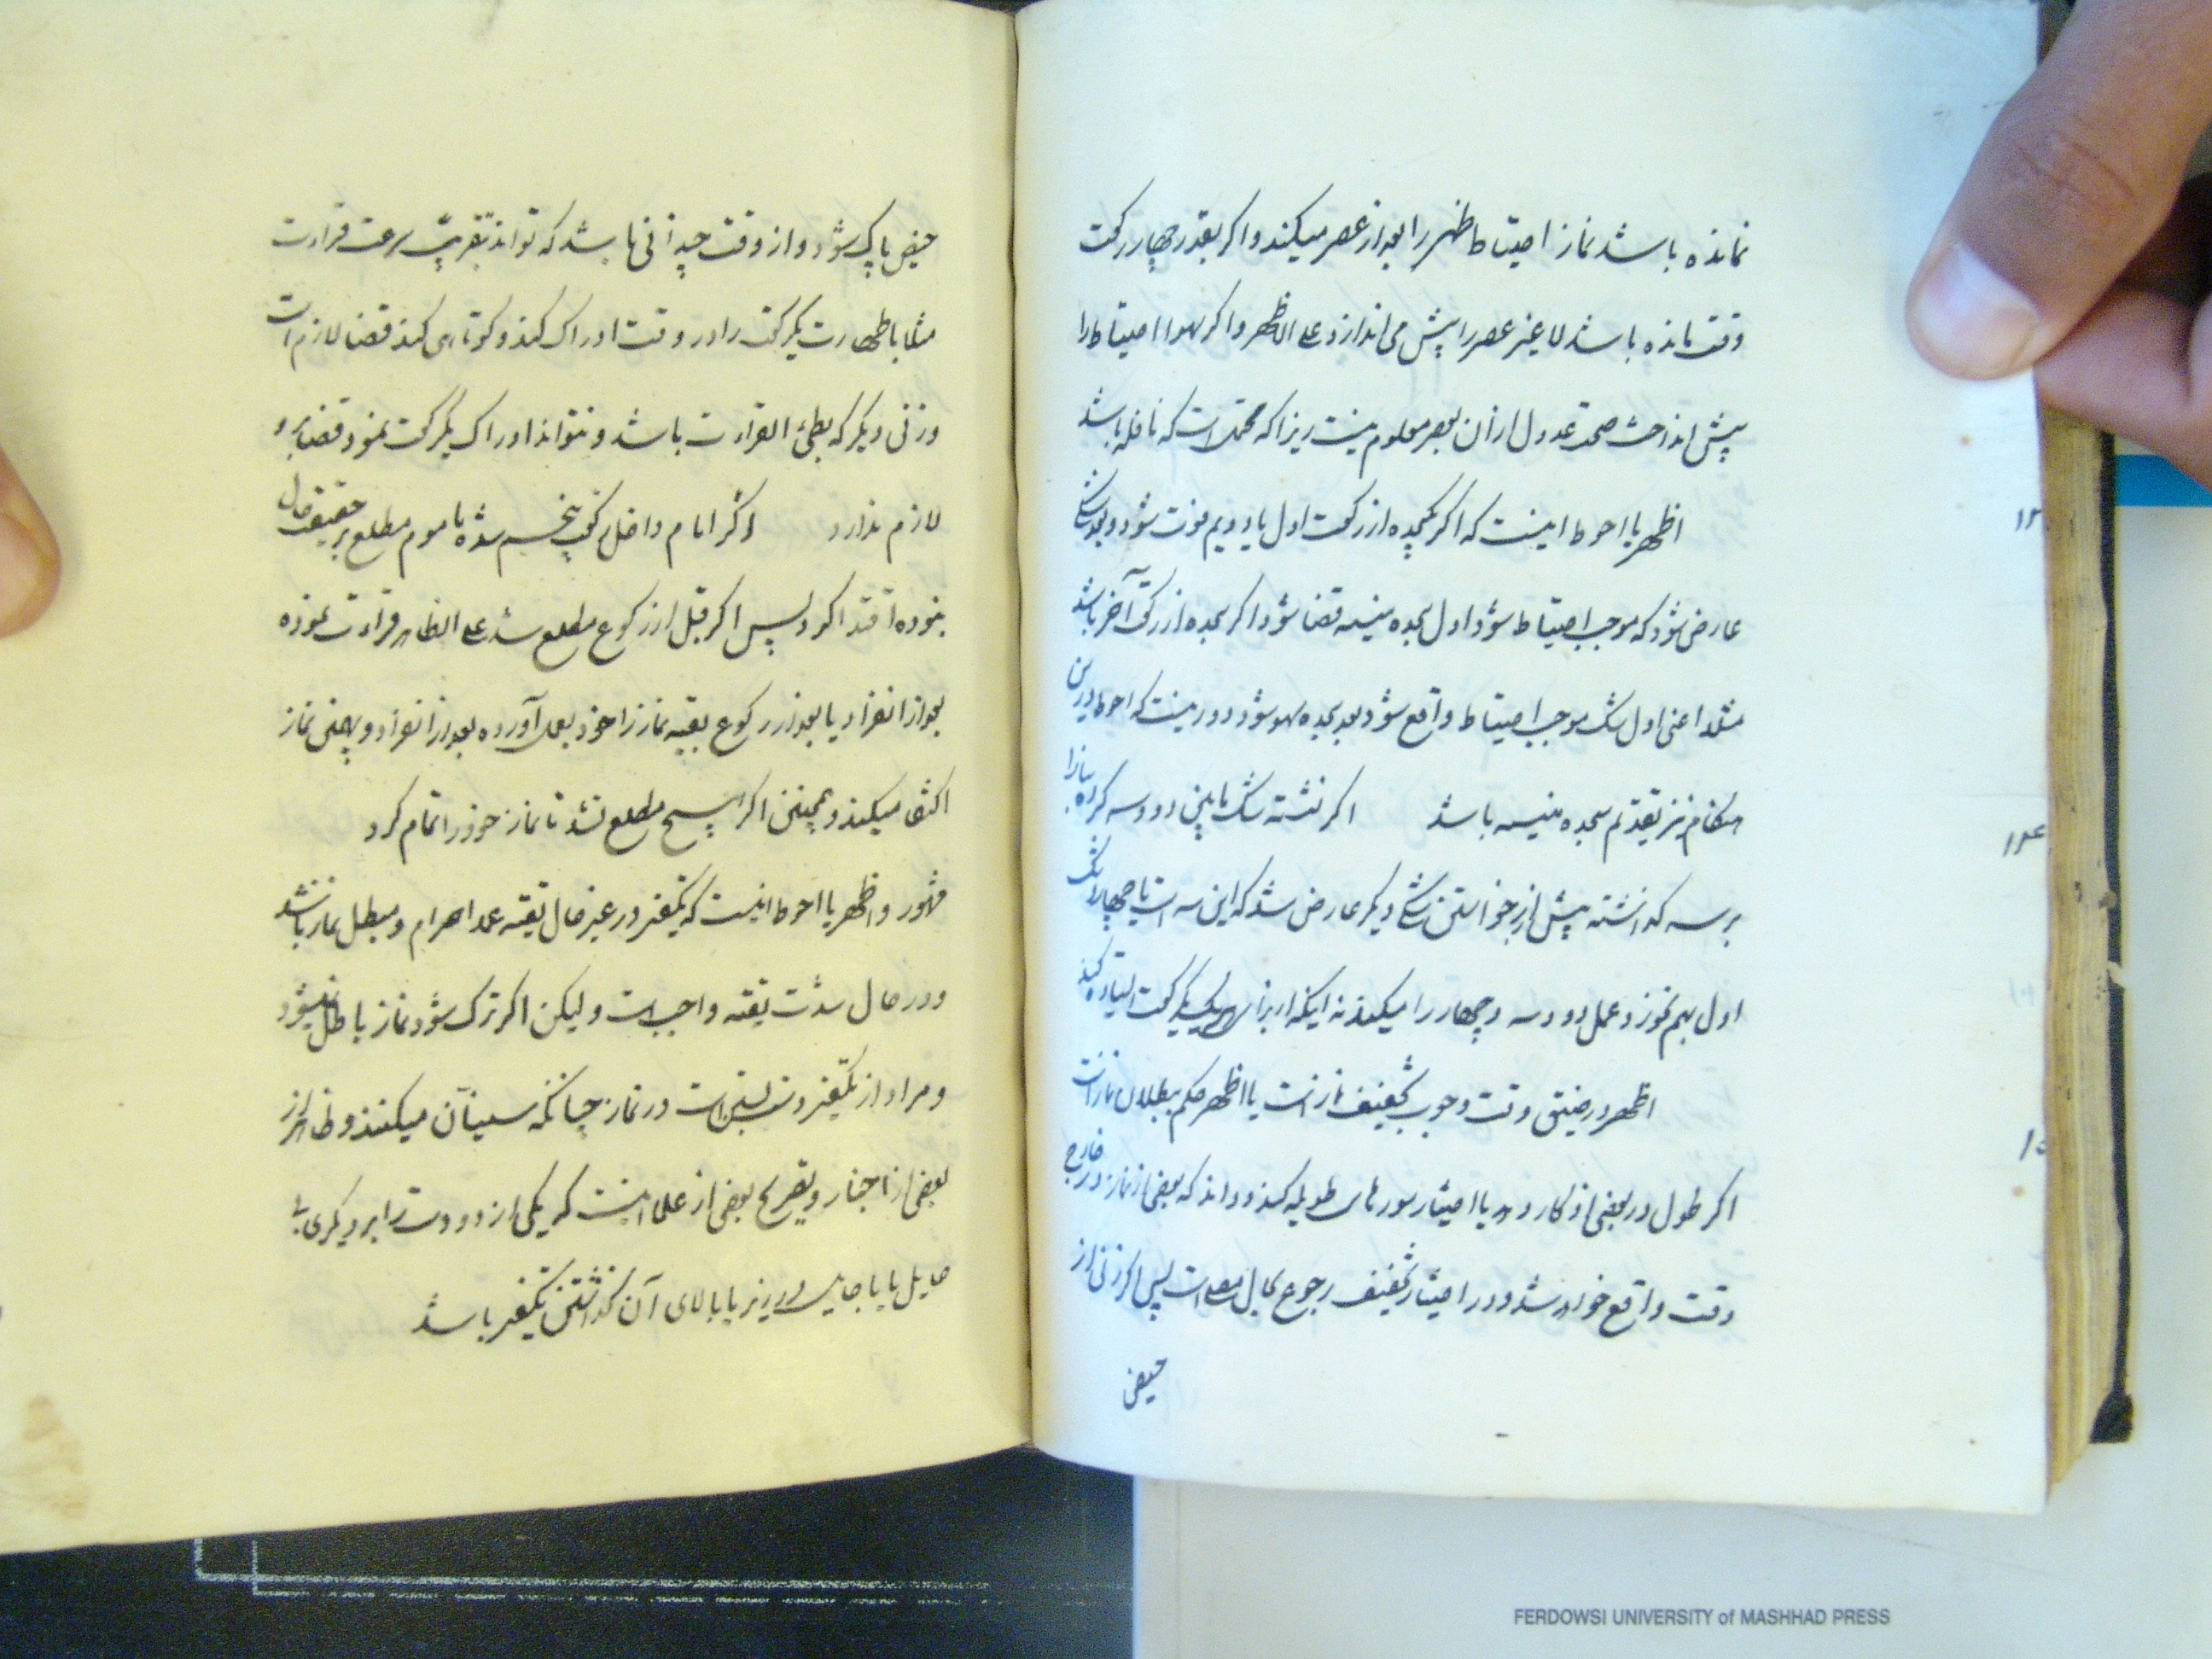 نمانده باشد نماز احتیاط ظهر را بعد از عصر میکند و اکر بقدر چهار رکعت
وقت مانده باشد لا غیر عصر را پیش می اندازد علی الاظهر و اکر سهوا احتیاط را
پیش انداخت صحت عدول از آن بعصر معلوم نیست زیرا که محتملست که نافله باشد
اظهر یا احوط اینست که اکر یکسجده از رکعت اول یا دویم فوت شود و بعد شکی
عارض شود که موجب احتیاط شود اول سجده منسیه قضا شود اکر سجده از رکعت آخر باشد
مثلا اعنی اول شک موجب احتیاط واقع شود بعد سجده سهو شود دور نیست که احوط در این
هنکام نیز تقدیم سجده منسیه باشد اکر نشسته شک مابین دو و سه کرده بنا را
بر سه کذاشته پیش از برخواستن شکی دیکر عارض شد که این سه است یا چهار شک
اول بهم نخورد عمل دو و سه و چهار را میکند نه اینکه از برای هر یک یکرکعت ایستاده کند
اظهر در ضیق وقت وجوب تخفیف نماز است یا اظهر حکم ببطلان نماز است
اکر طول در بعضی اذکار دهد یا اختیار سورهای طویله کند و داند که بعضی از نماز در خارج
وقت واقع خواهد شد و در اختیار تخفیف رجوع بحال مصلی است پس اکر زنی از
حیض
حیض پاک شود و از وقت چندانی باشد که تواند بتقریب سرعت قرائت
مثلا با طهارت یکرکعت را در وقت ادراک کند و کوتاهی کند قضا لازم است
و زنی دیکر که بطیء القرائت باشد و نتواند ادراک یکرکعت نمود قضا بر او
لازم ندارد اکر امام داخل رکعت پنجم شده ماموم مطلع بر حقیقت حال
نبوده اقتدا کرد پس اکر قبل از رکوع مطلع شد علی الظاهر قرائت نموده
بعد از انفراد یا بعد از رکوع بقیه نماز را خود بعمل آورده بعد از انفراد و بهمین نماز
اکتفا میکند و همچنین اکر هیچ مطلع نشد تا نماز خود را تمام کرد
مشهور و اظهر یا احوط اینست که تکفیر در غیر حال تقیه عمدا حرام و مبطل نماز باشد
و در حال شدت تقیه واجبست و لیکن اکر ترک شود نماز باطل نمیشود
و مراد از تکفیر دست بستن است در نماز چنانکه سنیان میکنند و ظاهر از
بعضی از اخبار و تصریح بعضی از علما اینست که یکی از دو دست را بر دیکری بی
حایل یا با حایل در زیر یا بالای آن کذاشتن تکفیر باشد
FERDOWSI UNIVERSITY of MASHHAD PRESS